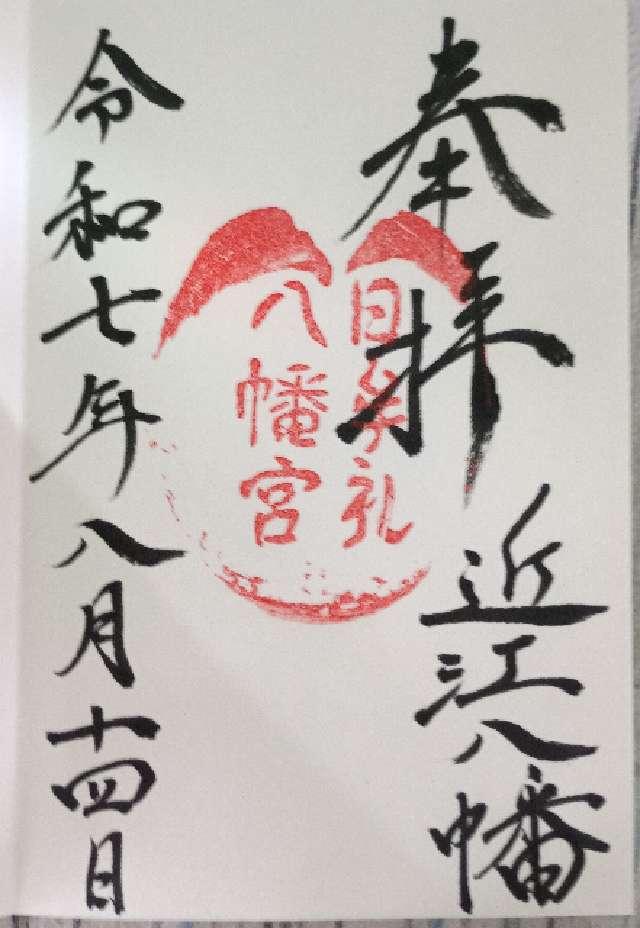 奉拝
近江八幡
日牟礼
八幡宮
令和七年八月十四日